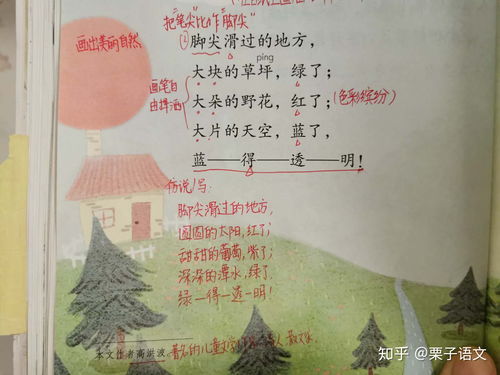 把"笔尖"比作"脚尖"
画出美丽自然
②脚尖滑过的地方，
píng
大块的草坪，绿了；
画笔自由挥洒
大朵的野花，红了；(色彩缤纷)
大片的天空，蓝了，
蓝——得——透——明！
仿说/写：
脚尖滑过的地方，
圆圆的太阳，红了；
甜甜的葡萄，紫了；
深深的潭水，绿了
绿—得—透—明！
本文作者高洪波，著名的儿童文学作家、诗人、散文家
知乎 @栗子语文